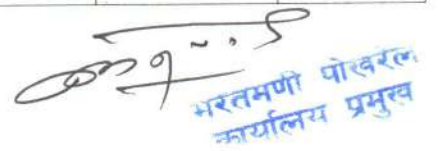 भरतमणी पोखरेल
कार्यालय प्रमुख